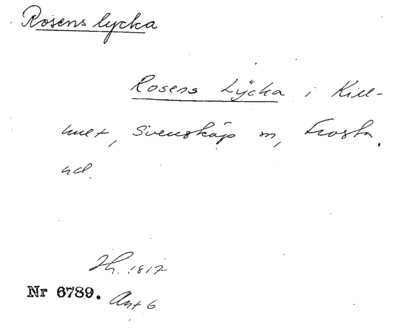 Rosens lycka
Rosens Lÿcka i Kill-
hult, Svensköp sn, Frosta
hd.
Jh. 1817
Nr 6789. Ant 6